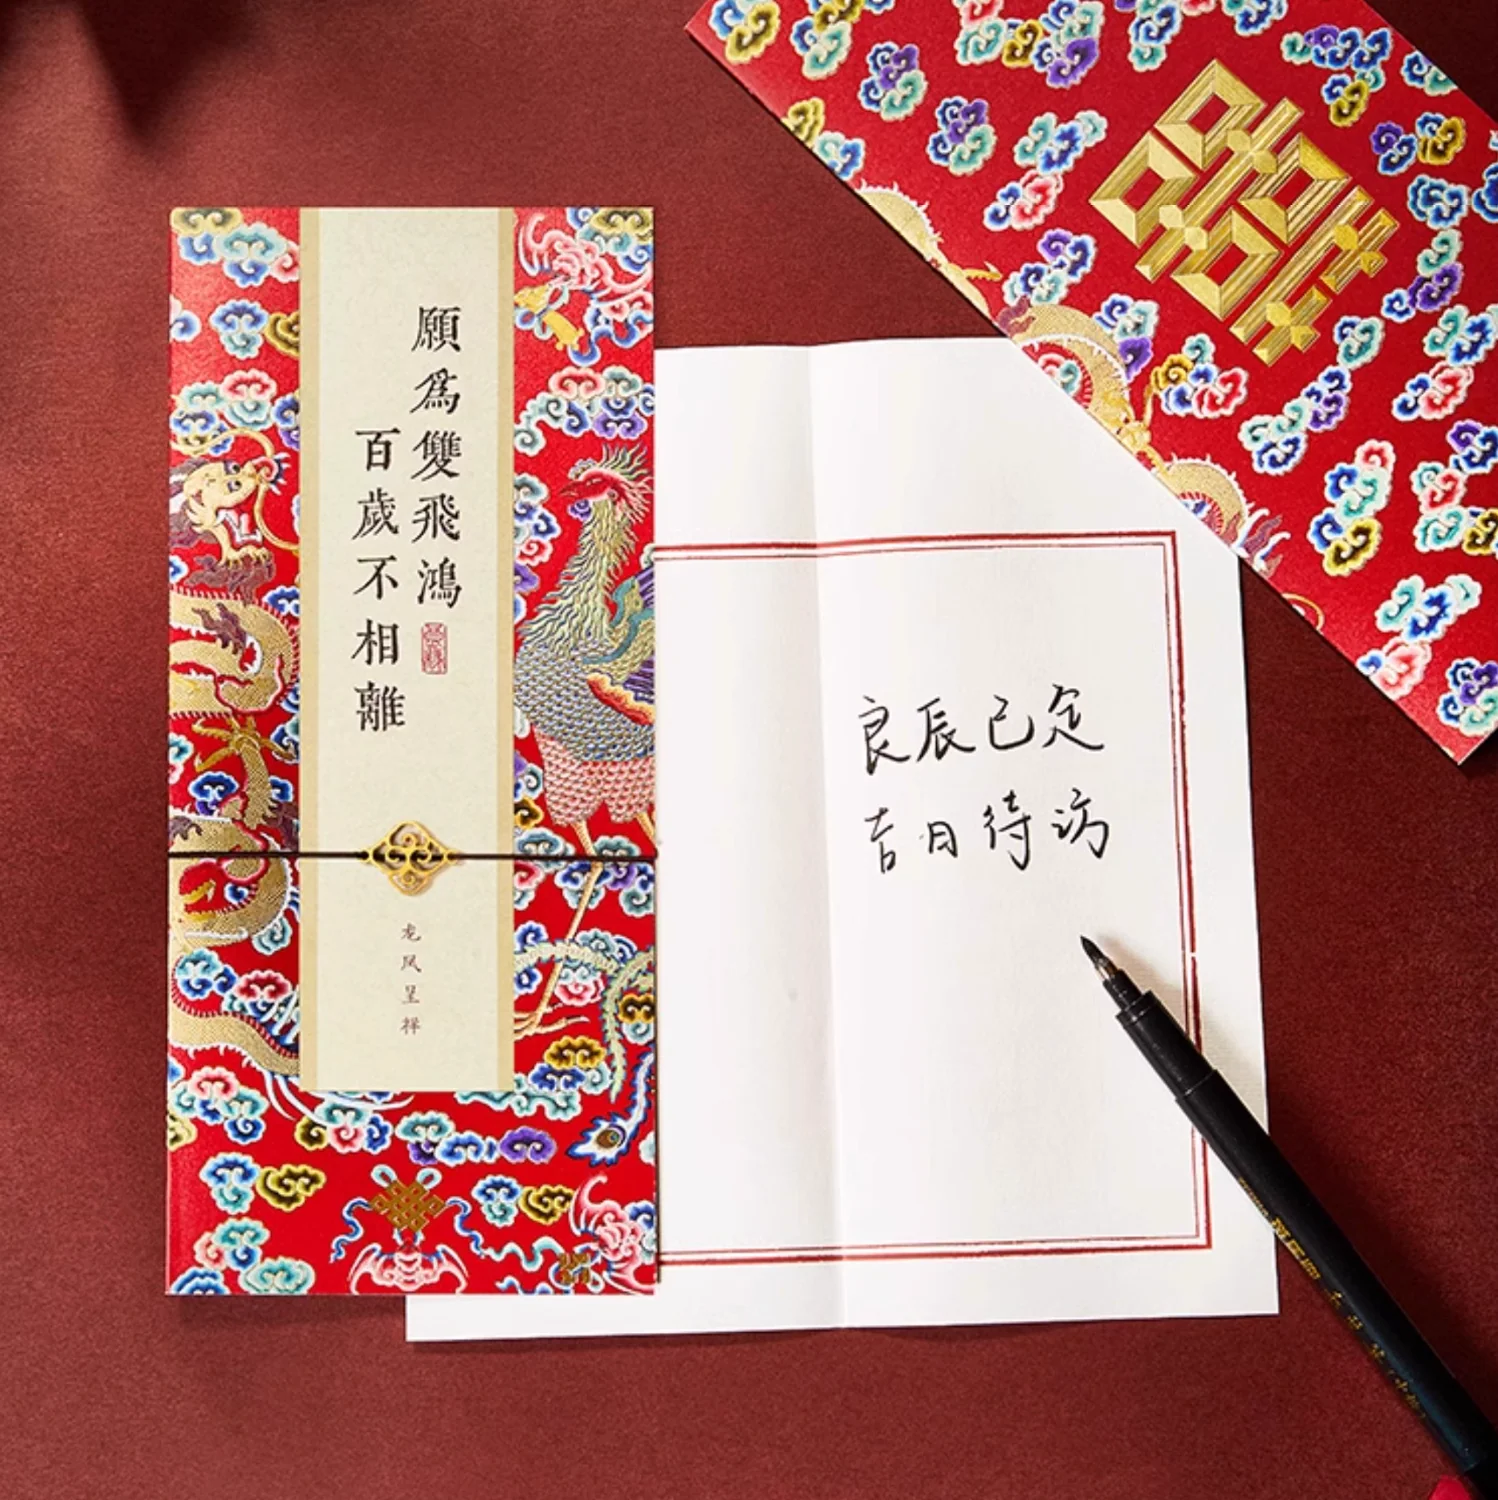 願為雙飛鴻
百歲不相離
龙凤呈祥
良辰已定
吉日待访
囍